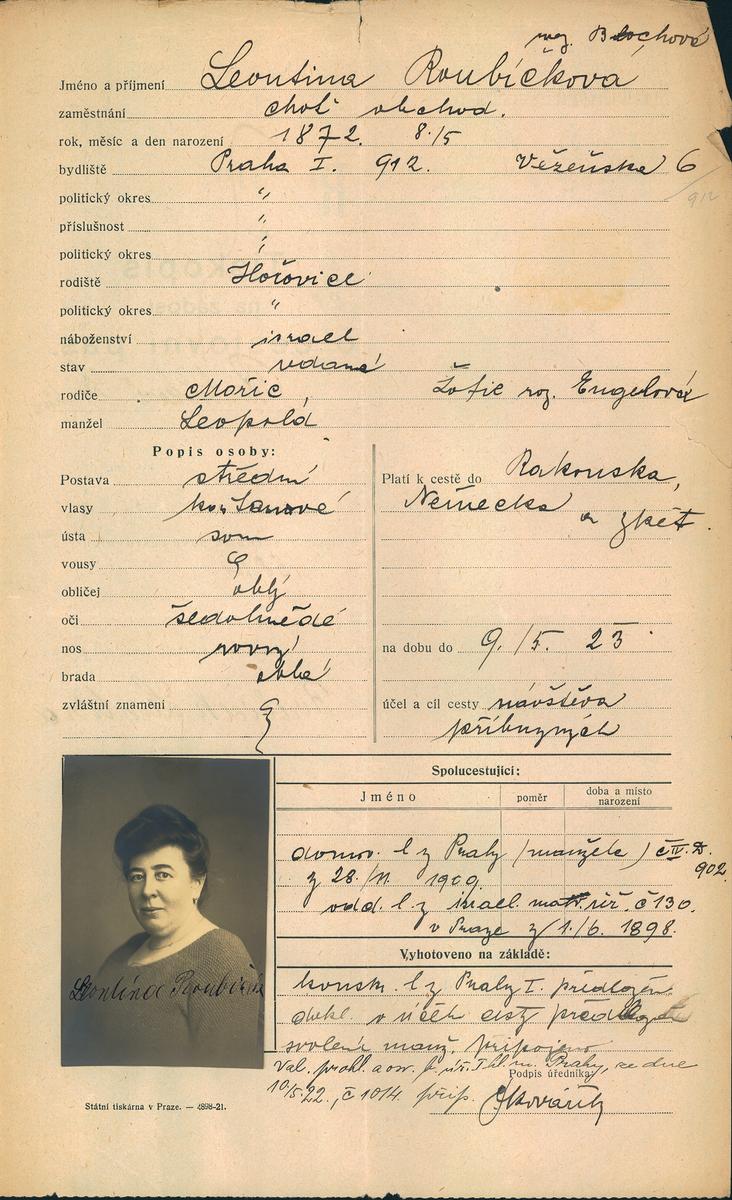 roz. Blochová
Jméno a příjmení Leontina Roubíčková
zaměstnání choť obchod.
rok, měsíc a den narození 1872. 8./5
bydliště Praha I. 912. Vězeňská 6
912
politický okres "
příslušnost "
politický okres "
rodiště Hořovice
politický okres "
náboženství israel
stav vdaná
rodiče Mořic Žofie roz. Engelová
manžel Leopold
Popis osoby:
Postava střední
vlasy kaštanové
ústa soum
vousy
obličej oblý
oči šedohnědé
nos rovný
brada oblá
zvláštní znamení
Platí k cestě do Rakouska,
Německa a zpět.
na dobu do 9./5. 23
účel a cíl cesty návštěva
příbuzných
Spolucestující:
Jméno poměr doba a místo narození
domov. l. z Prahy (manžela) č IV. D. 902.
z 28./11. 1909.
odd. l. z israel. matr. úř. č 130.
v Praze z 1./6. 1898.
Vyhotoveno na základě:
konskr. l. z Prahy I. předložen
dekl. v účel cesty
svolení manž. připojeno
Val. prohl. a Prahy, ze dne
10/5.22., č 1014. přip.
Podpis úředníka:
Kovařík
Leontina Roubíčk
Státní tiskárna v Praze. — 4898-21.